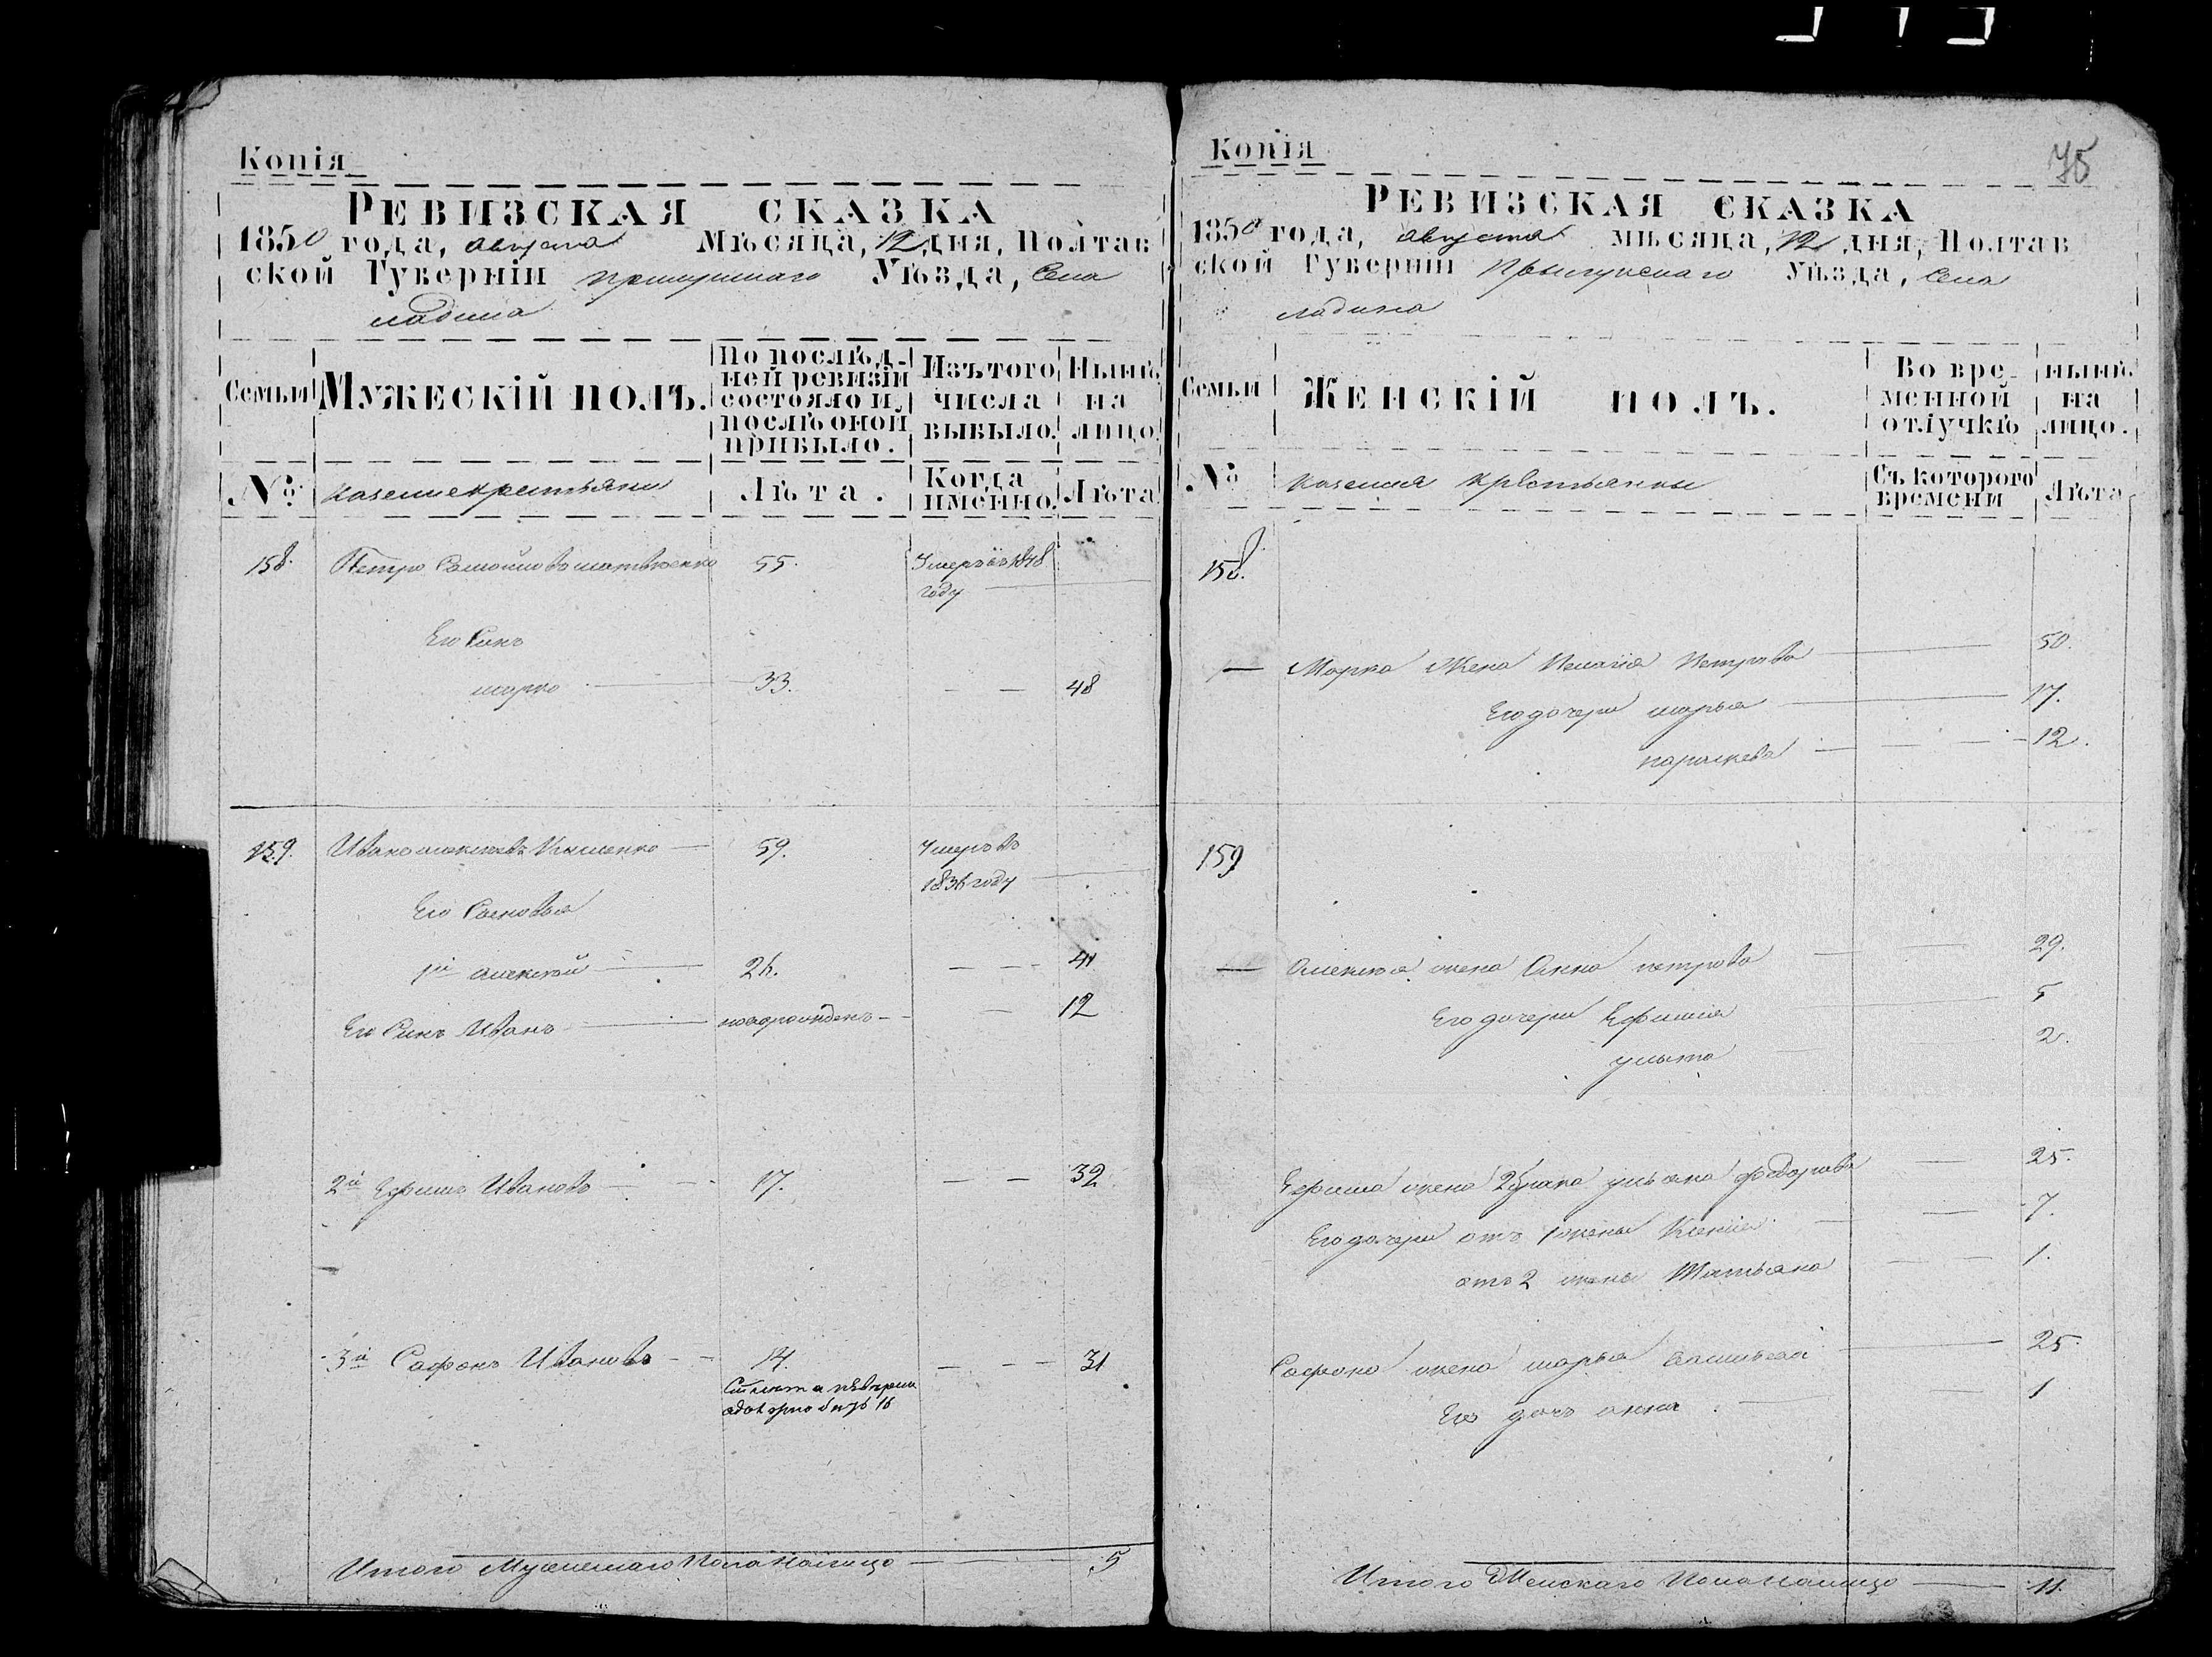 Копія
РЕВИЗСКАЯ СКАЗКА
1850 года, августа Мѣсяца, 12 дня, Полтав
ской Губерніи Прилуцкаго Уѣзда, Села
Ладина
Семьи
МУЖЕСКІЙ ПОЛЪ.
По послѣд-
ней ревизіи
состояло и
послѣ оной
прибыло.
Изъ того
числа
выбыло.
Нынѣ
на
лицо.
№
казенные крестьяне
Лѣта.
Когда
именно.
Лѣта
158. Петро Самойловъ Матвѣенко 55. Умеръ въ 1848
году
Его Синъ
Марко 33. 48
159. Иванъ Алексѣевъ 59. Умеръ въ
году
Его Сыновья
1й Алексѣй 26. 41
Его Синъ Иванъ новорожденъ 12
2й Ефимъ Ивановъ 17. 32
3й Сафонъ Ивановъ 14. 31
Итого Мужескаго Пола Налицо 5
Копія
75
РЕВИЗСКАЯ СКАЗКА
1850 года, августа мѣсяца, 12 дня, Полтав
ской Губерніи Прылуцкаго Уѣзда, Села
Ладина
Семьи
ЖЕНСКІЙ ПОЛЪ.
Во вре-
менной
отлучкѣ
нынѣ
на
лицо.
№
казенныя крестьянки
Съ которого
времени
Лѣта
158.
Марка Жена Пелагія Петрова 50.
Его дочери Марья 17.
Параскева 12.
159
Алексѣя жена Анна Петрова 29.
Его дочери Ефимія 5
Улита 2.
Ефима жена 2 брака Ульяна Федорова 25.
Его дочери отъ 1 жены Ксенія 7.
отъ 2 жены Татьяна 1.
Сафона жена Марья 25.
Его дочь Анна 1
Итого Женскаго Пола Налицо 11.